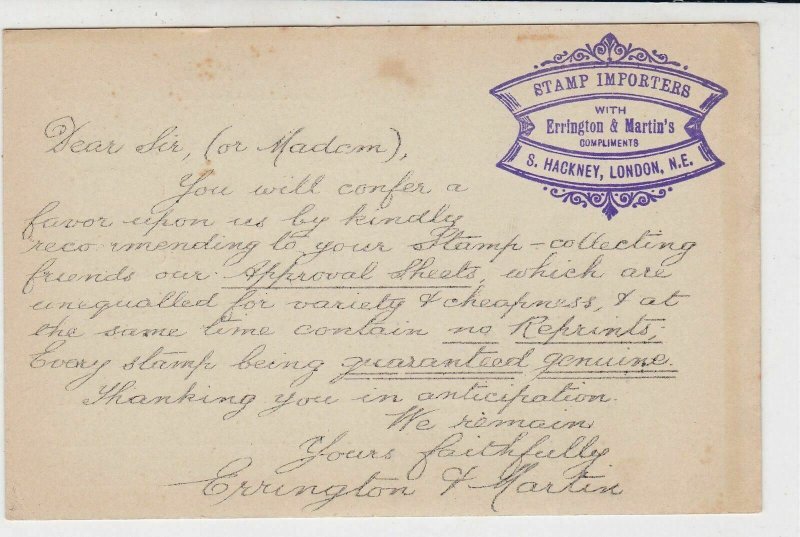 STAMP IMPORTERS
WITH
Errington & Martin's
COMPLIMENTS
S. HACKNEY, LONDON, N.E.
Dear Sir, (or Madam),
You will confer a
favor upon us by kindly
recommending to your Stamp-collecting
friends our Approval Sheets, which are
unequalled for variety & cheapness, & at
the same time contain no Reprints;
Every stamp being guaranteed genuine.
Thanking you in anticipation.
We remain
Yours faithfully
Errington & Martin